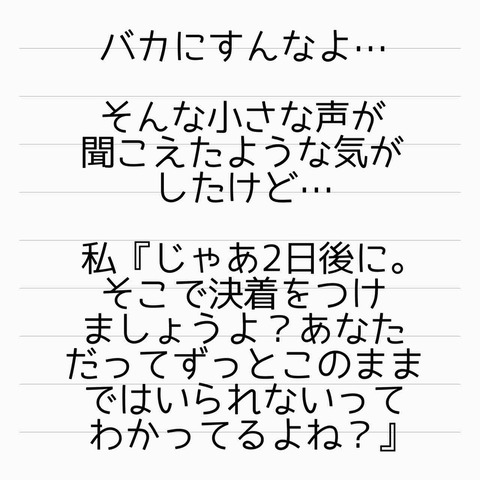 バカにすんなよ…
そんな小さな声が
聞こえたような気が
したけど…
私『じゃあ2日後に。
そこで決着をつけ
ましょうよ？あなた
だってずっとこのまま
ではいられないって
わかってるよね？』